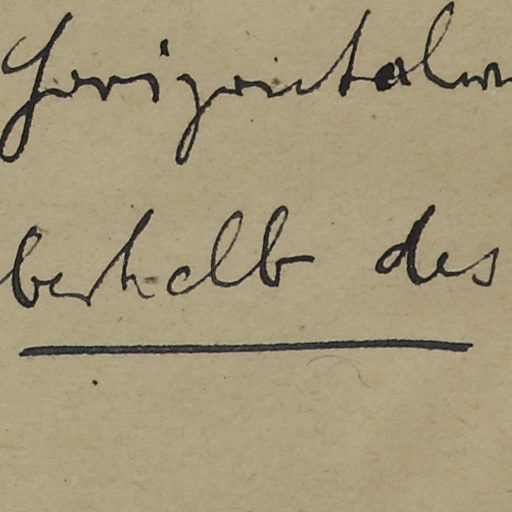 Horizontalen
berhalb des